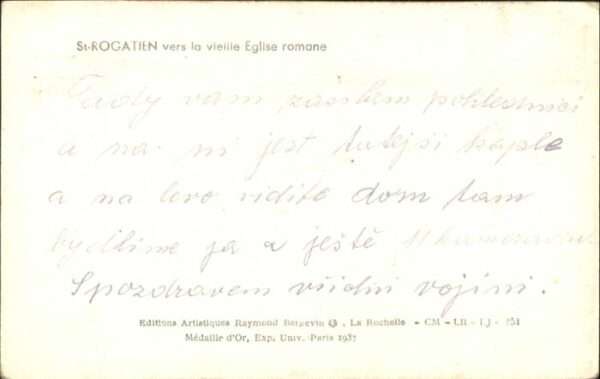 St-ROGATIEN vers la vieille Eglise romane
Tady vam zasilem pohlednici
a na ni jest tutejši kaple
a na levo vidite dom tam
bydlime ja a ještě
Spozdravem všidni vojini.
Editions Artistiques Raymond Bergevin, La Rochelle - CM - LR - LJ - 251
Médaille d'Or, Exp. Univ. Paris 1937